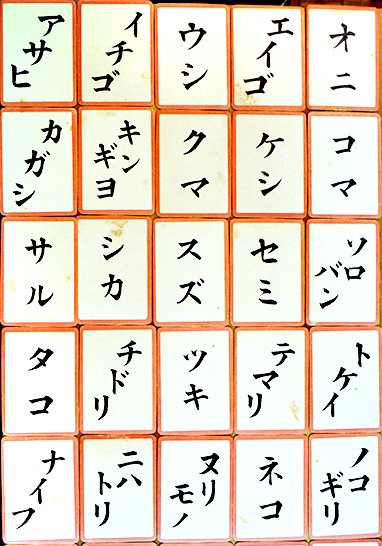 アサヒ
イチゴ
ウシ
エイゴ
オニ
カガシ
キンギヨ
クマ
ケシ
コマ
サル
シカ
スズ
セミ
ソロバン
タコ
チドリ
ツキ
テマリ
トケイ
ナイフ
ニハトリ
ヌリモノ
ネコ
ノコギリ